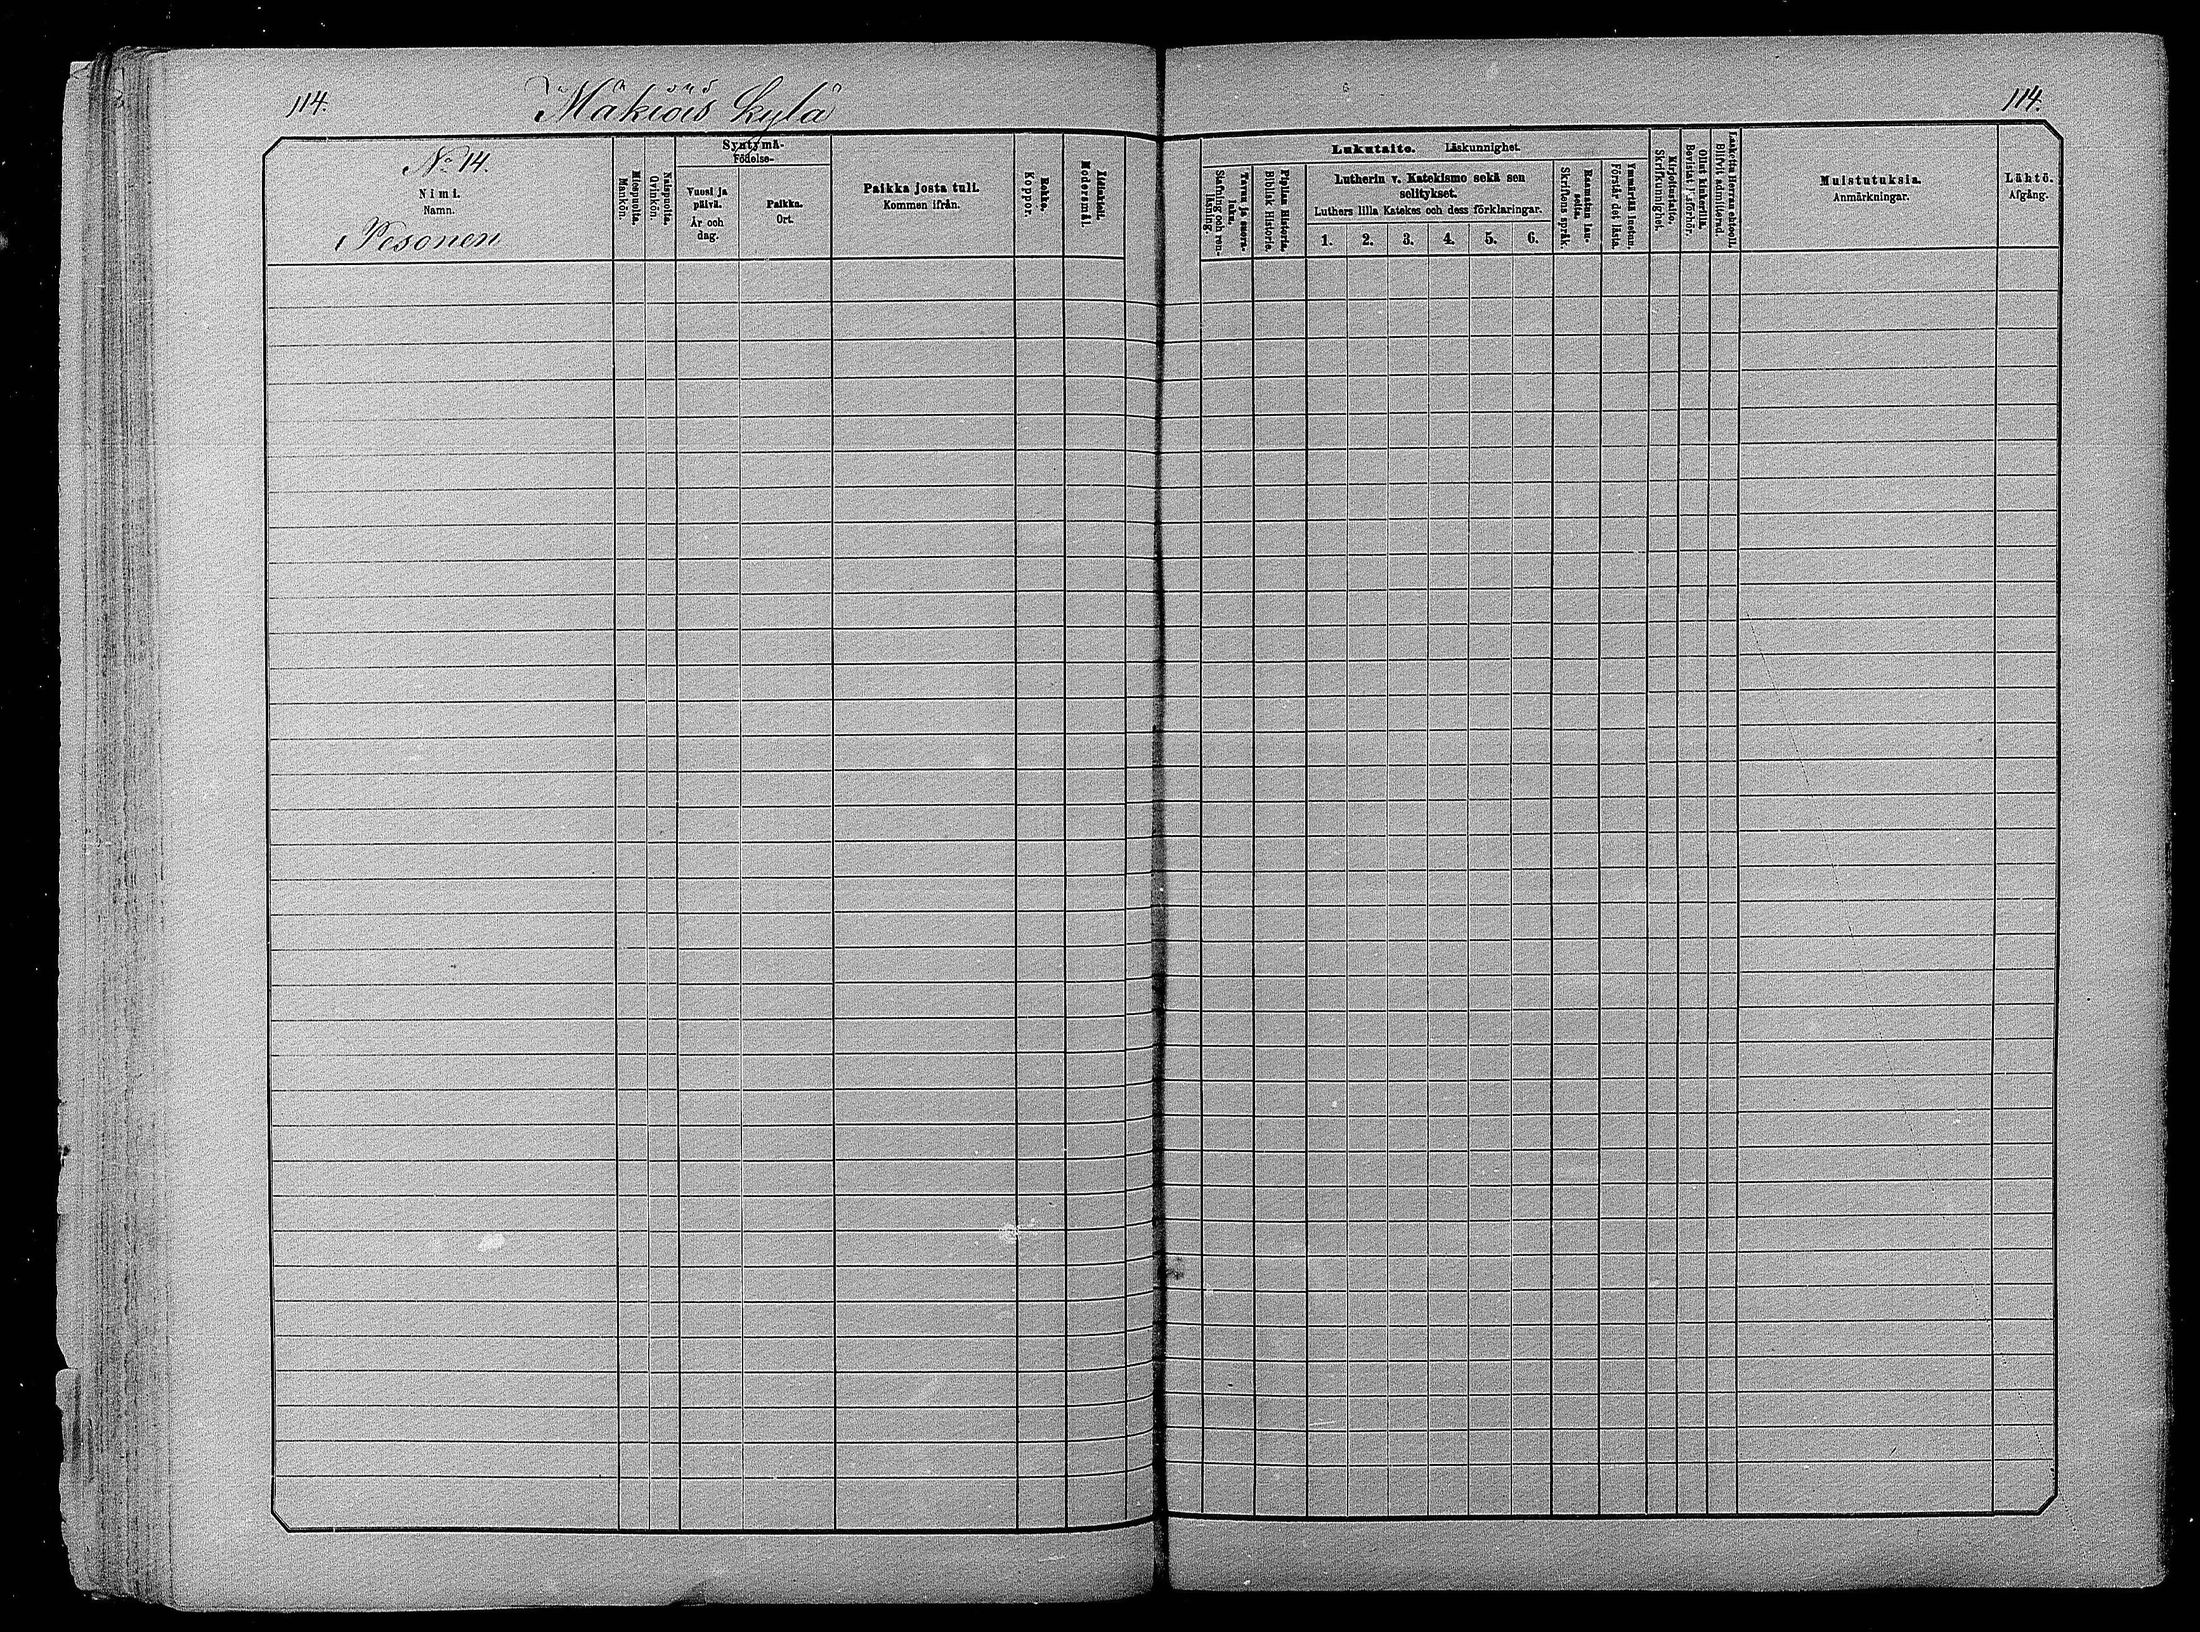 114.
Mäkiöis kylä
114.
No 14.
Nimi.
Namn.
Pesonen
Miespuolta.
Mankön.
Naispuolta.
Qvinkön.
Syntymä-
Födelse-
Vuosi ja
päivä.
År och
dag.
Paikka.
Ort.
Paikka josta tuli.
Kommen ifrån.
Rokko.
Koppor.
Äidinkieli.
Modersmål.
Lukutaito. Läskunnighet.
Tavuu ja suora-
luku.
Stafning och ren-
läsning.
Piplian Historia.
Biblisk Historie.
Lutherin v. Katekismo sekä sen
selitykset.
Luthers lilla Katekes och dess förklaringar.
1. 2. 3. 4. 5. 6.
Raamatun lau-
seita.
Skriftens språk.
Ymmärtää luetun.
Förstår det lästa.
Kirjoitustaito.
Skrifkunnighet.
Ollut kinkerillä.
Bevistat läsförhör.
Laskettu Herran ehtooll.
Blifvit admitterad.
Muistutuksia.
Anmärkningar.
Lähtö.
Afgång.